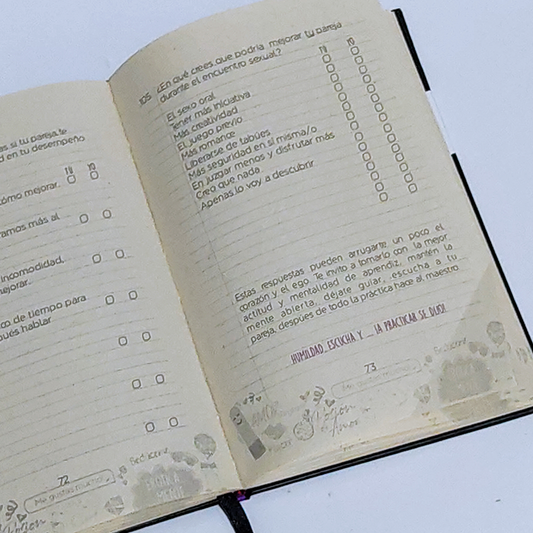 as si tu pareja te
d en tu desempeño
TÚ YO
cómo mejorar.
ramos más al
incomodidad.
ejorar.
co de tiempo para
pués hablar
72
¡Me gustas mucho!
Sedúceme
105 ¿En qué crees que podría mejorar tu pareja
durante el encuentro sexual?
TÚ YO
El sexo oral
Tener más iniciativa
Más creatividad
El juego previo
Más romance
Liberarse de tabúes
Más seguridad en sí misma/o
En juzgar menos y disfrutar más
Creo que nada
Apenas lo voy a descubrir
Estas respuestas pueden arrugarte un poco el
corazón y el ego. Te invito a tomarlo con la mejor
actitud y mentalidad de aprendiz, mantén la
mente abierta, déjate guiar, escucha a tu
pareja, después de todo la práctica hace al maestro.
HUMILDAD, ESCUCHA Y ... ¡A PRACTICAR SE DIJO!
73
¡Me gustas mucho!
Sedúceme
AMOR